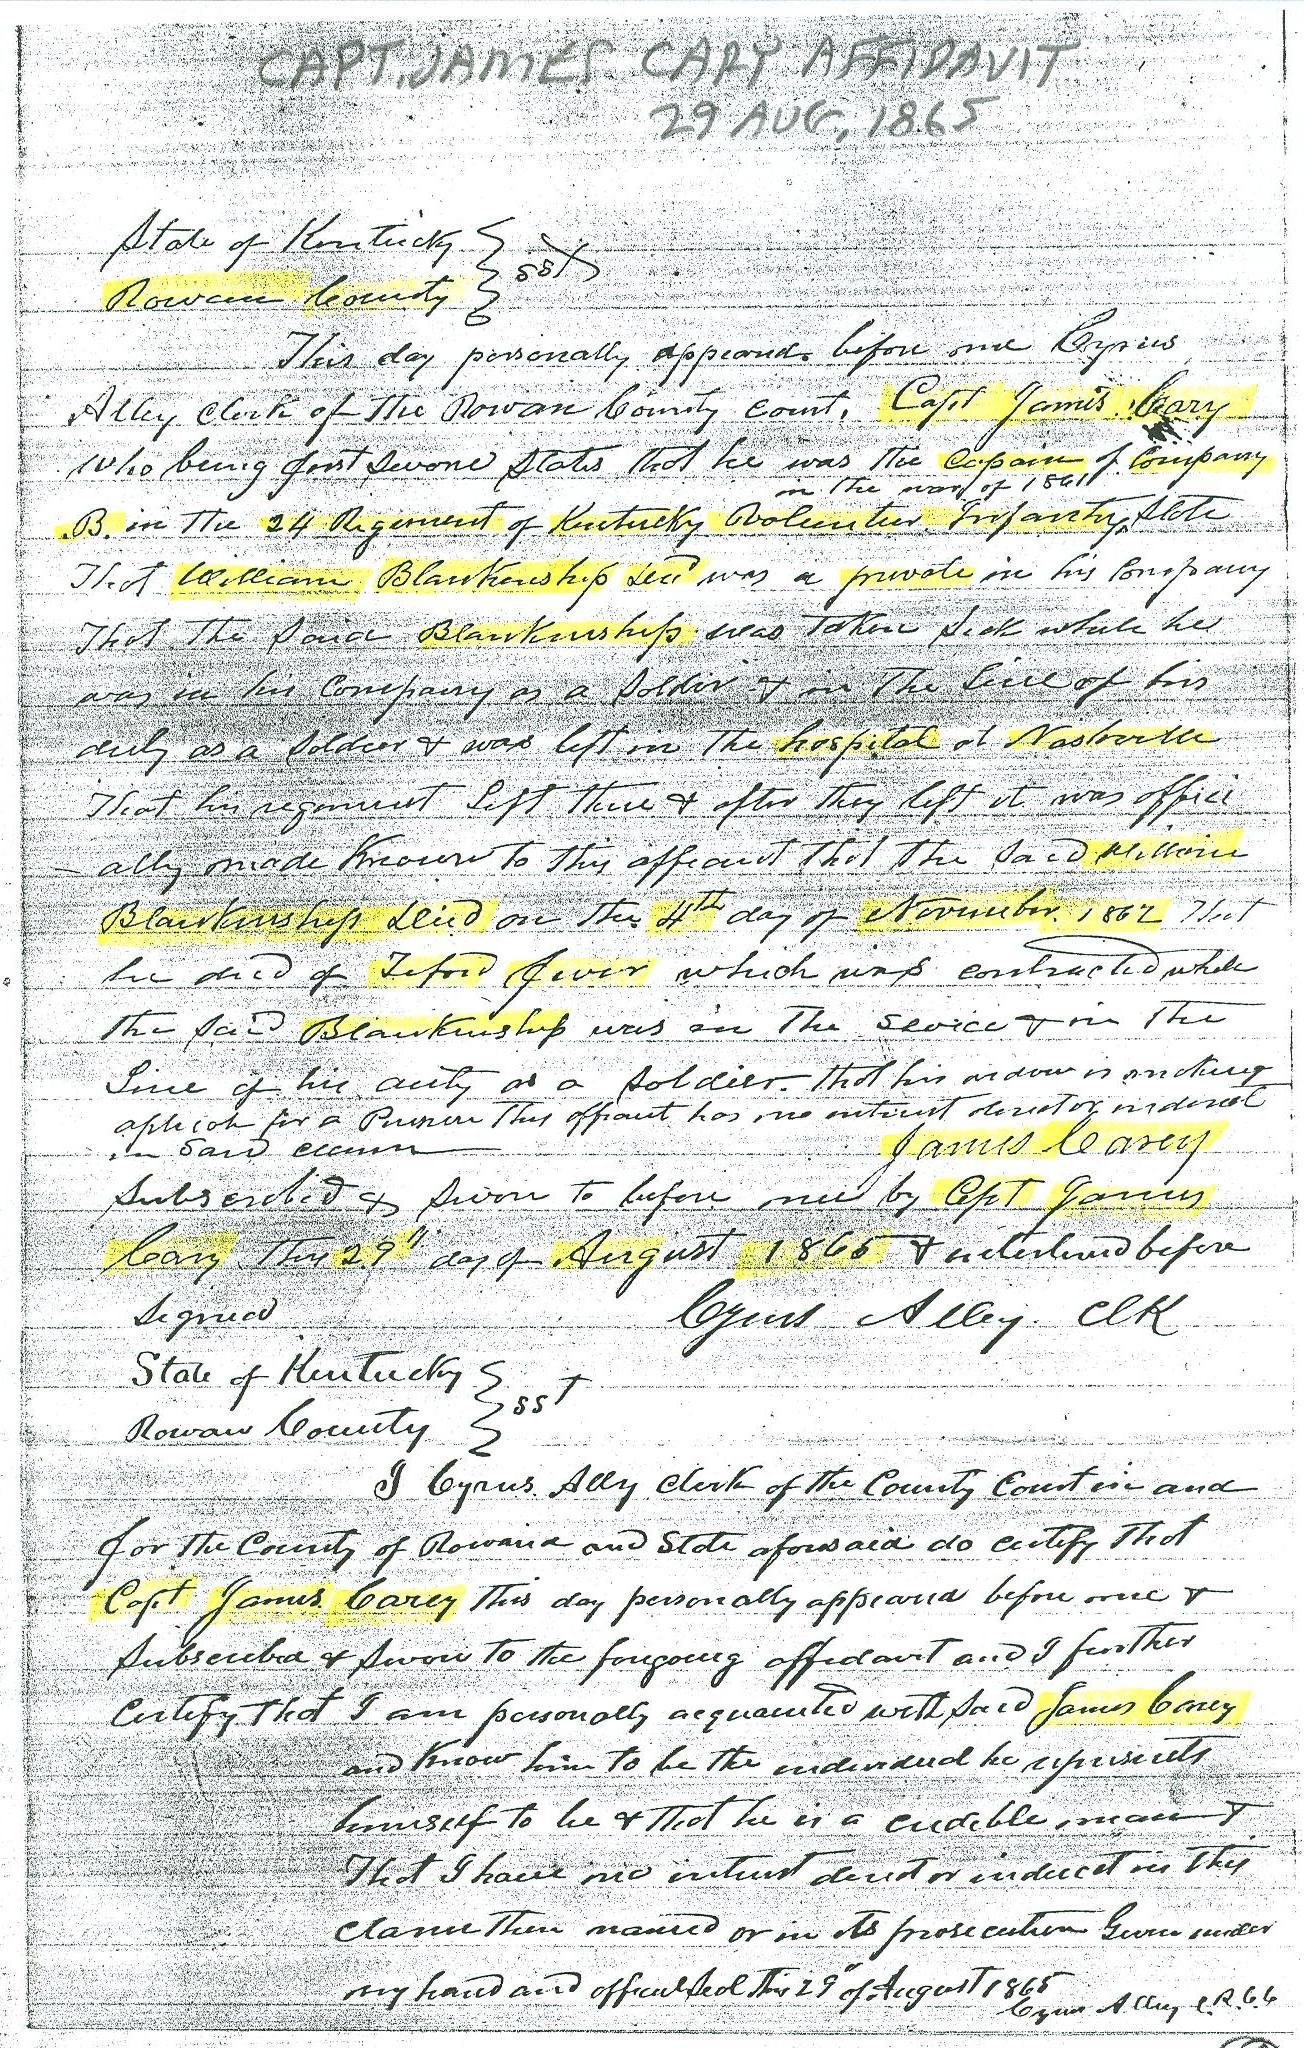 CAPT. JAMES CARY AFFIDAVIT
29 AUG, 1865
State of Kentucky } sst
Rowan County
This day personally appeard before me Cyrus
Alley Clerk of the Rowan County court, Capt James Cary
Who being first Swone States that he was the Capain of Company
in the war of 1861
B. in the 24 Regement of Kentucky Volunter Infantry State
That William Blankinship Decd was a private in his Company
That the said Blankinship was taken Sick while he
was in his Company as a Soldir & in The Line of his
duty as a Soldier & was left in the hospital at Nashville
That his regiment Left there & after they left it was offici
ally made Known to this affeant that the said William
Blankinship Deid on the 4th day of November. 1862 That
he died of Tiford fever which was contracted while
the said Blankinship was in the sevice & in the
Line of his duty as a Soldier. that his widow is making
for a Pension This affiant has no intrust direct or inderect
in said claim
James Carey
Subscribed & Swon to before me by Cpt James
Cary This 29" day of August 1865 & interlined before
Signed Cyrus Alley. ClK
State of Kentucky } sst
Rowan County
I Cyrus Ally Clerk of the County Court in and
for the County of Rowan and State aforsaid do certify that
Capt James Carey this day personally appeared before me &
Subscribed & Swon to the forgoing affidavit and I further
Certify that I am personally acquainted with said James Carey
and Know him to be the individual he represents
himself to be & that he is a credible man &
That I have no intrust direct or indirect in this
claim then named or in its prosecution Given under
my hand and official Seal this 29" of August 1865
Cyrus Alley C.R.C.C